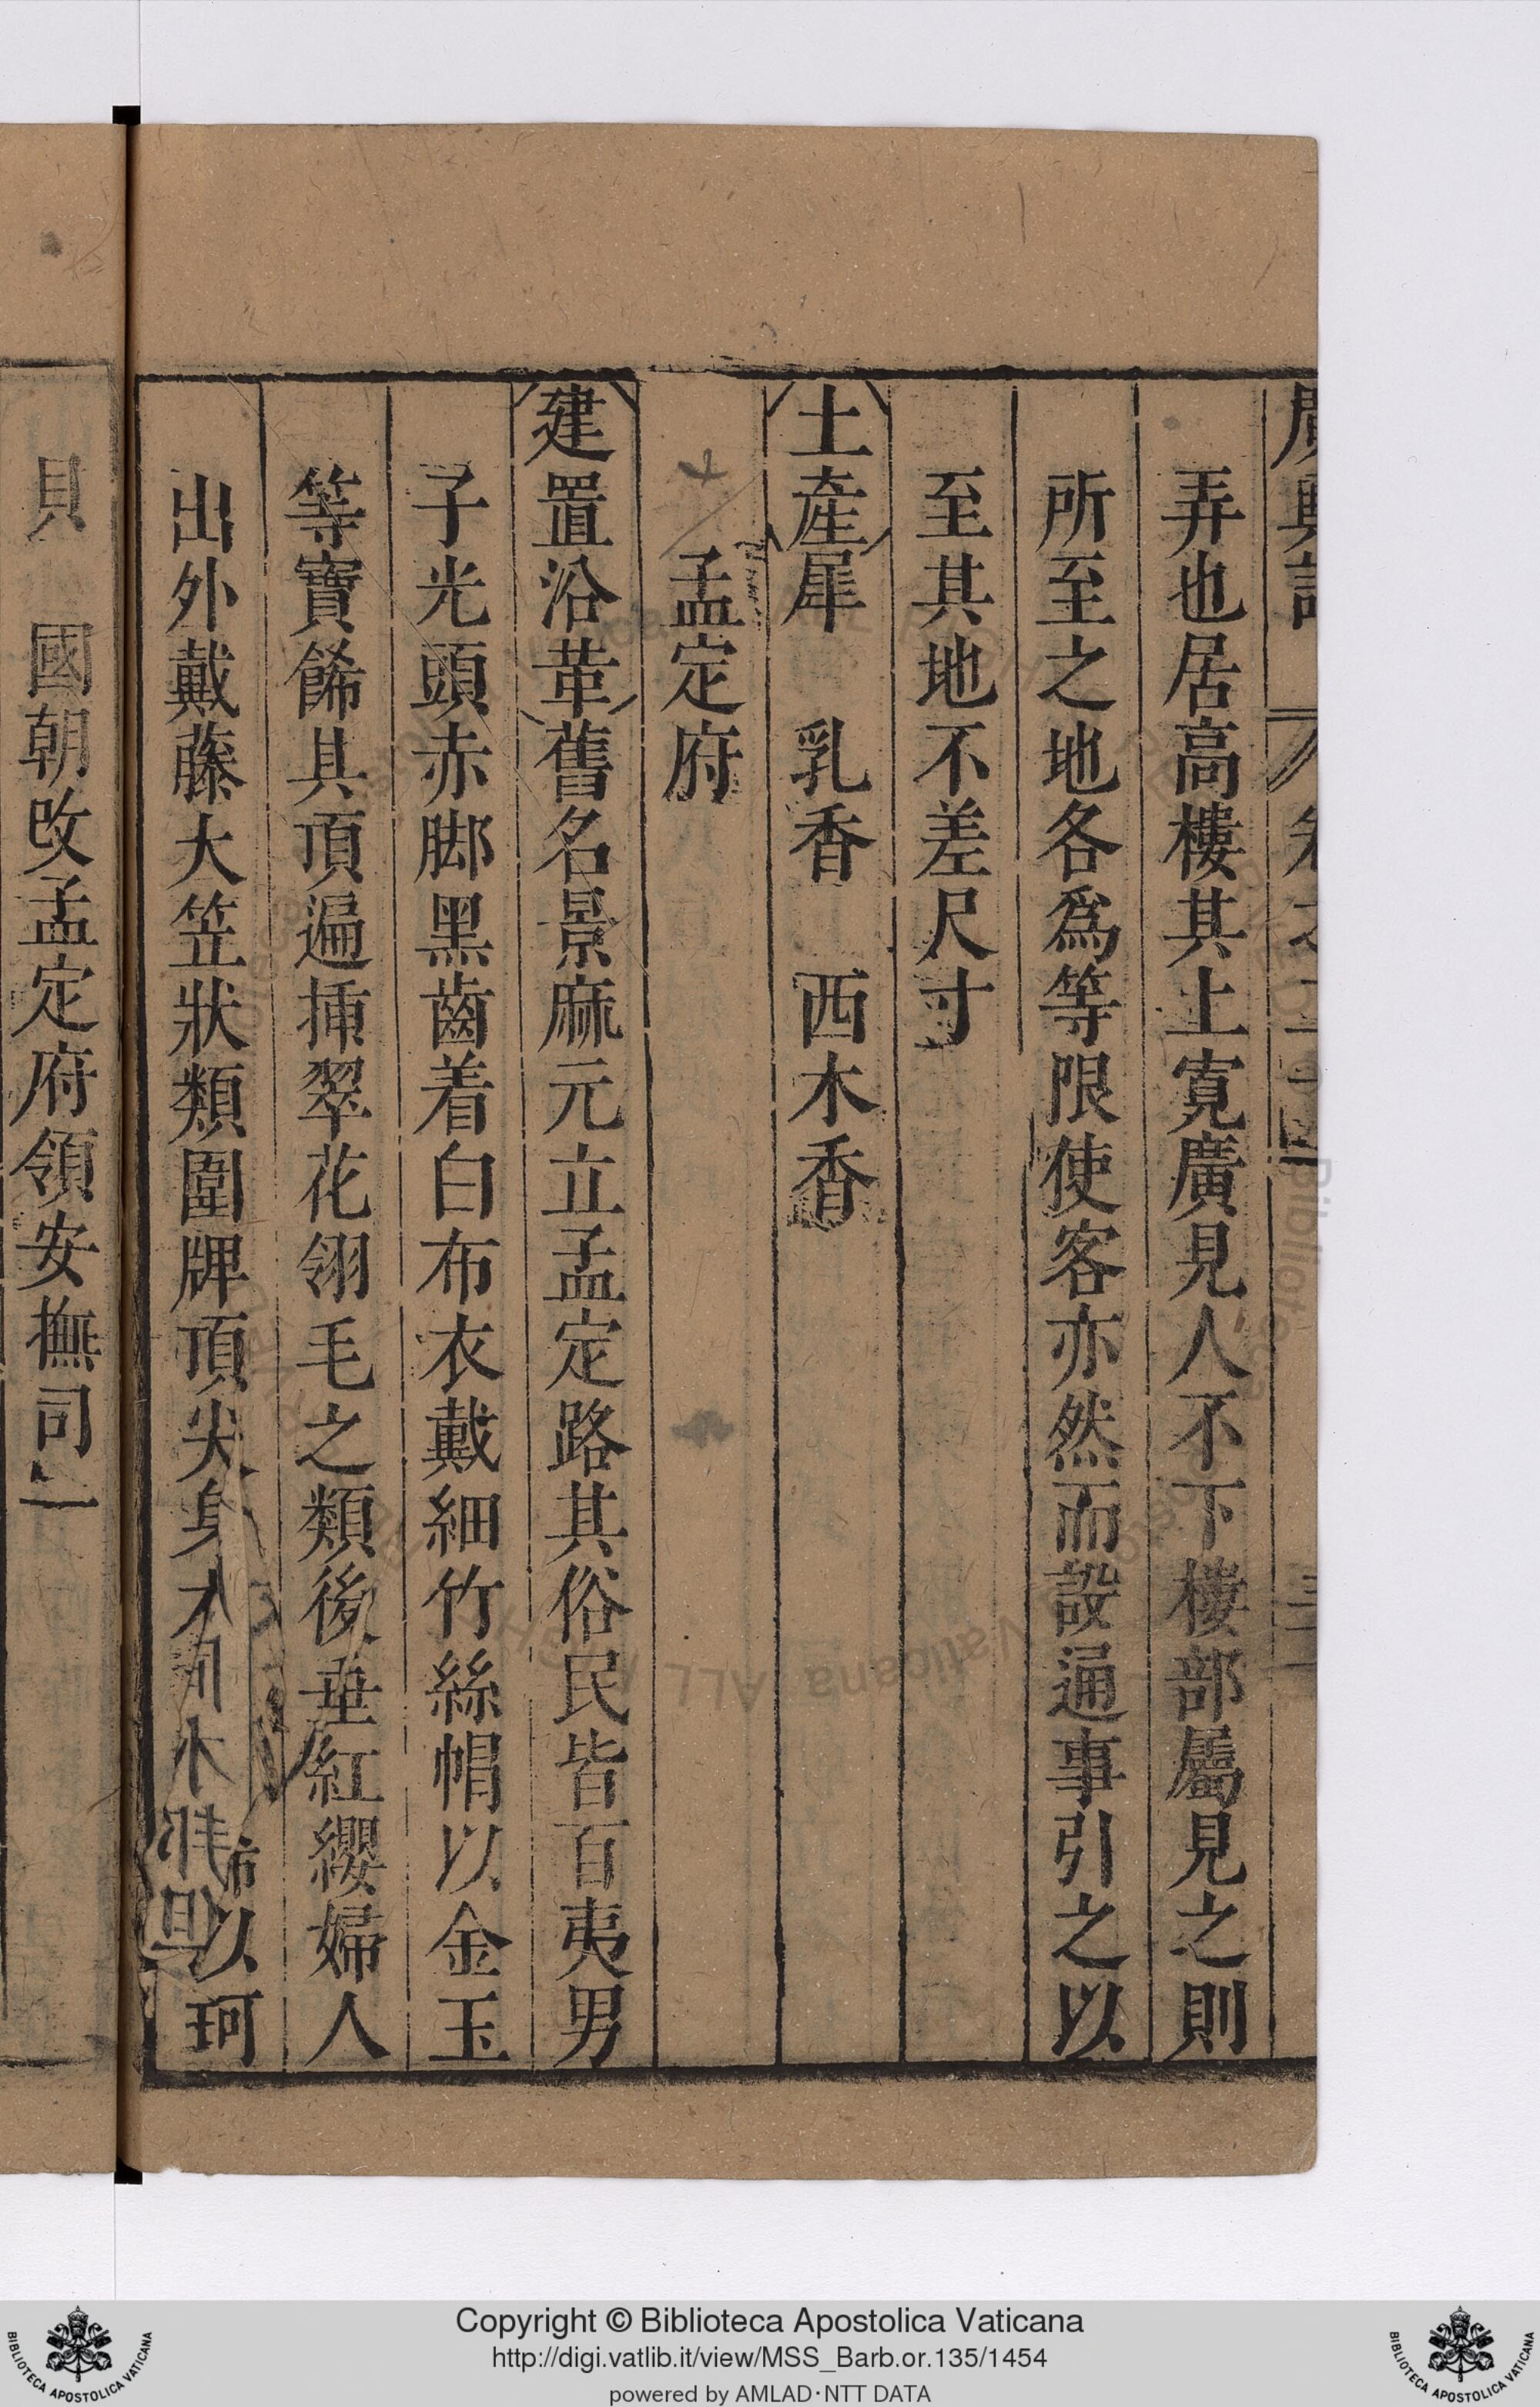 廣輿記 卷之二十一
弄也居高樓其上寬廣見人不下樓部屬見之則
所至之地各爲等限使客亦然而設通事引之以
至其地不差尺寸
土產犀 乳香 西木香
孟定府
建置沿革舊名景麻元立孟定路其俗民皆百夷男
子光頭赤脚黑齒着白布衣戴細竹絲帽以金玉
等寶餙其頂遍揷翠花翎毛之類後垂紅纓婦人
出外戴藤大笠狀類圍牌頂尖身衣以珂
貝 國朝改孟定府領安撫司一
Copyright © Biblioteca Apostolica Vaticana
http://digi.vatlib.it/view/MSS_Barb.or.135/1454
powered by AMLAD·NTT DATA
BIBLIOTECA APOSTOLICA VATICANA
BIBLIOTECA APOSTOLICA VATICANA